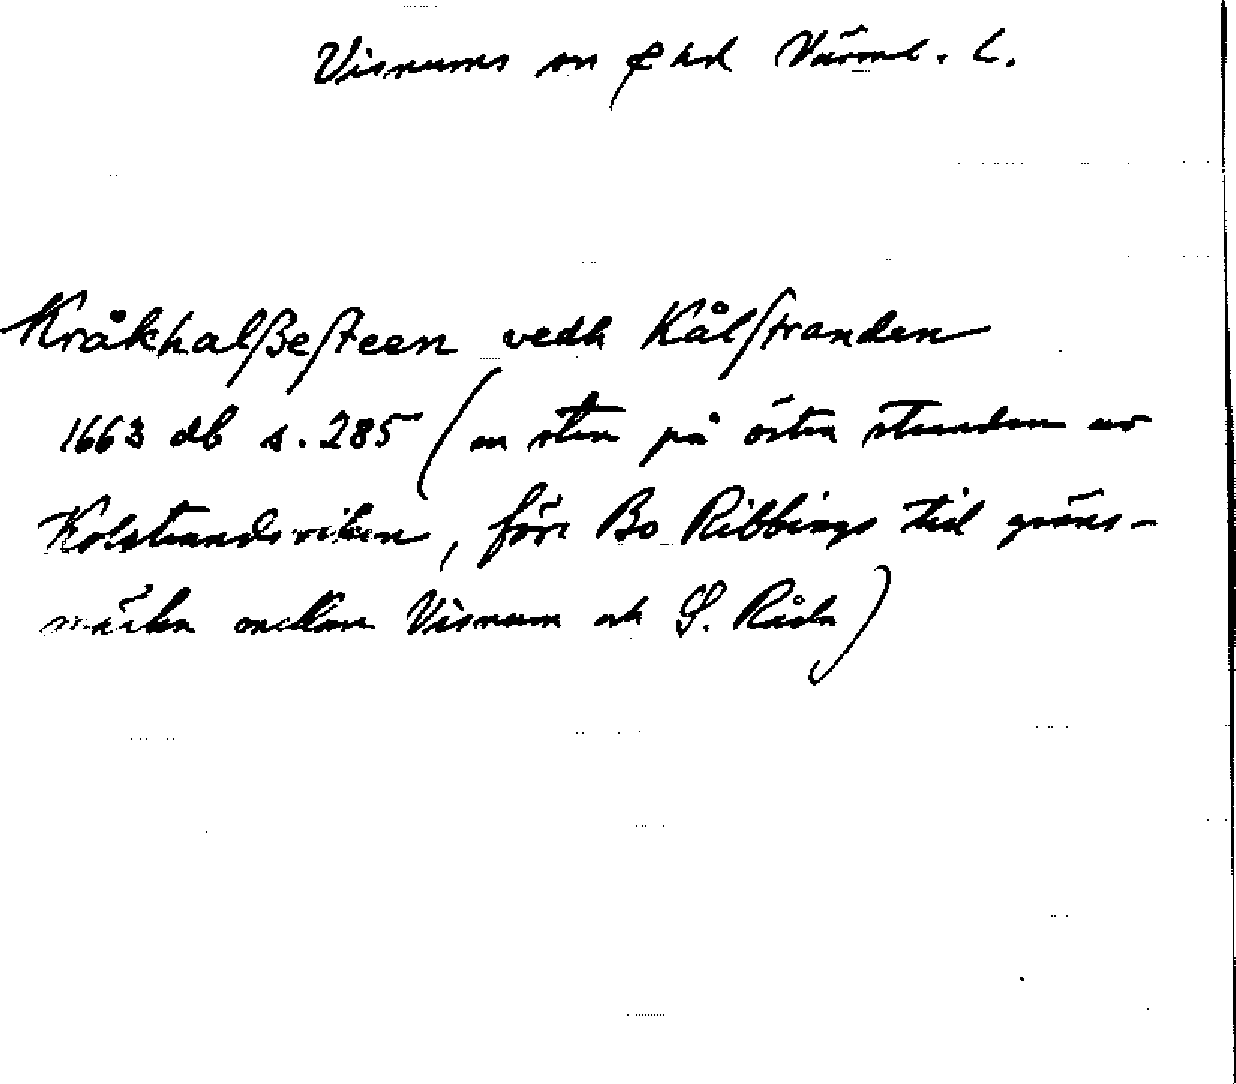 Visnums sn & hd Värml. l.
Kråkhalßesteen vedh Kålstranden
1663 db s. 285 (en sten på östra stranden av
Kolstrandsviken, före Bo Ribbings tid gräns-
märke mellan Visnum och S. Råda)